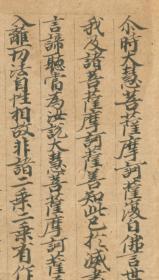 尒時大慧菩薩摩訶薩復白佛言世
我及諸菩薩摩訶薩善知此已於滅
言諦聽當為汝說大慧菩薩摩訶薩
入離切法自性相故非諸二乘二乘有作